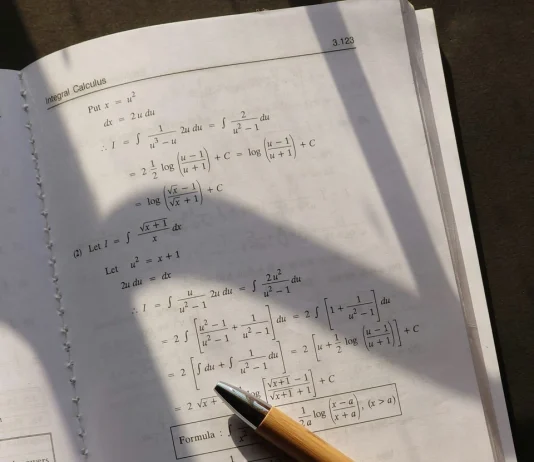 Integral Calculus 3.123
Put x = u²
dx = 2u du
∴ I = ∫ 1/(u³ − u) 2u du = ∫ 2/(u² − 1) du
= 2 1/2 log ((u − 1)/(u + 1)) + C = log ((u − 1)/(u + 1)) + C
= log ((√x − 1)/(√x + 1)) + C
(2) Let I = ∫ √(x + 1)/x dx
Let u² = x + 1
2u du = dx
∴ I = ∫ u/(u² − 1) 2u du = ∫ 2u²/(u² − 1) du
= 2 ∫ [(u² − 1)/(u² − 1) + 1/(u² − 1)] du = 2 ∫ [1 + 1/(u² − 1)] du
= 2 [∫ du + ∫ 1/(u² − 1) du] = 2 [u + 1/2 log ((u − 1)/(u + 1))] + C
= 2 √x + log [(√(x+1) − 1)/(√(x+1) + 1)] + C
Formula : ∫ 1/2a log ((x − a)/(x + a)), (x > a)